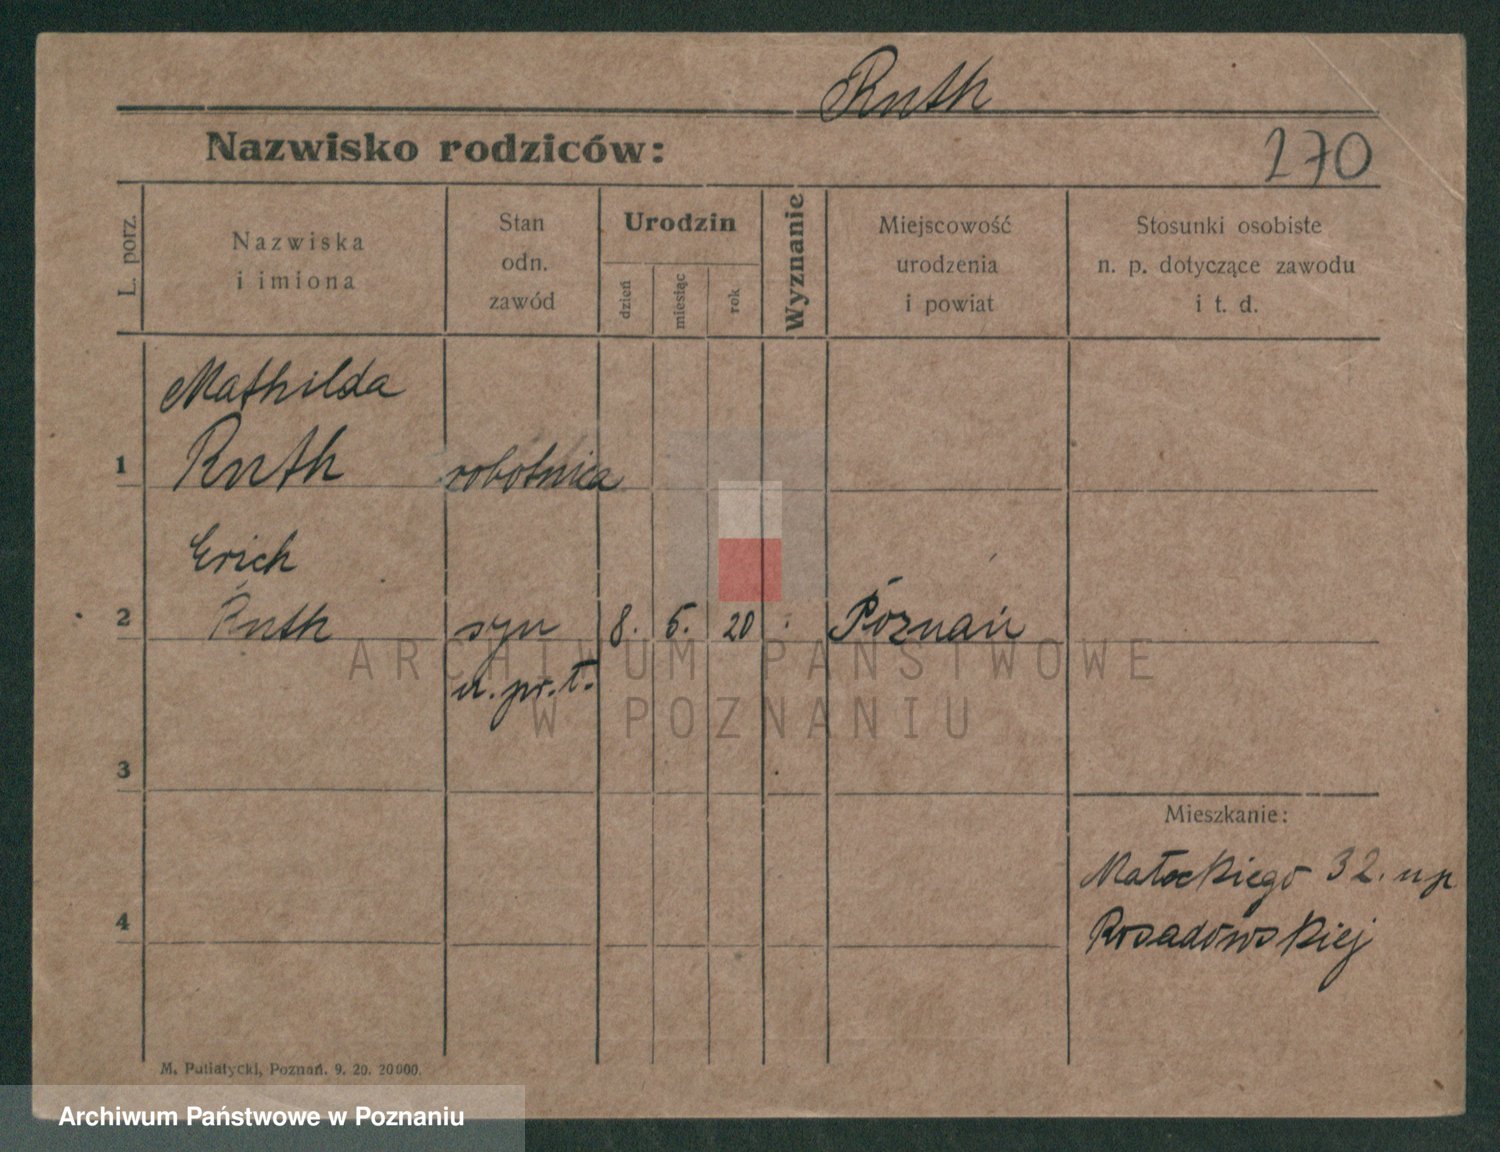 Ruth
Nazwisko rodziców:
270
L. porz.
Nazwiska
i imiona
Stan
odn.
zawód
Urodzin
dzień
miesiąc
rok
Wyznanie
Miejscowość
urodzenia
i powiat
Stosunki osobiste
n. p. dotyczące zawodu
i t. d.
Mathilda
1 Ruth robotnica
Erich
2 Ruth syn 8. 5. 20 Poznań
n. pr. t.
ARCHIWUM PAŃSTWOWE
W POZNANIU
3
Mieszkanie:
Małeckiego 32. u p
4
Rosadowskiej
M. Putiatycki, Poznań. 9. 20. 20000.
Archiwum Państwowe w Poznaniu